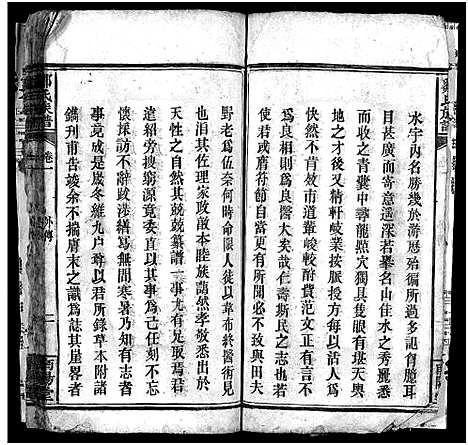 水宇內名勝幾於游歷殆徧所過多記有臆耳
目甚廣而寄意遙深若舉名山佳水之秀麗悉
收束之青囊中尋龍照穴獨具隻眼有堪天輿
地之才又精軒岐業按脈投方輒應手愈以活人爲
亟務不效市道韋峻較酬貲范文正有云不爲
良相則爲良醫大矣哉仁壽斯民之志也若
使君或膺符節自當更有所開必不致與田夫
野老爲伍奈何時命限人徒以韋布終醫術見
也溯其佐理家政敢本陸族藹然孝敬悉出於
天性之自然其兢兢纂譜一事尤有足取焉君
嘗搜旁按窮源竟委直以一人任之而毫無難色
懷採訪不辭跋涉繕寫無間寒暑乃知有志者
事竟成是歲冬維九戶尊以君所錄草本附諸
鐫刊甫告竣余不揣膚末之識爲誌其崖畧者
鄒氏族譜
卷一
外傳
一
南陽堂